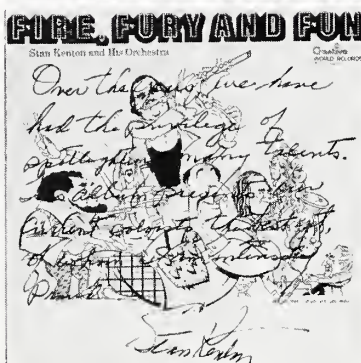 FIRE, FURY AND FUN
Stan Kenton and His Orchestra
Creative
WORLD RECORDS
Over the years, we have
had the privilege of
spotlighting many talents.
This album presents our
current soloists, the least of
whom
Stan Kenton